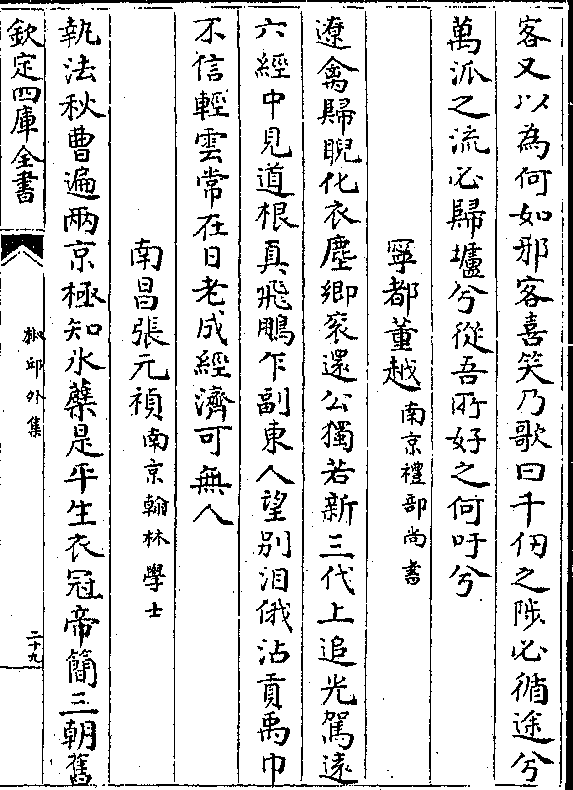 客又以為何如邪客喜笑乃歌曰千仞之陟必循途兮
萬派之流必歸壚兮從吾所好之何吁兮
寧都董越南京禮部尚書
遼禽歸睨化衣塵卿衮還公獨若新三代上追光駕遠
六經中見道根真飛鵬乍副東人望別泪俄沾貢禹巾
不信輕雲常在日老成經濟可無人
南昌張元禎南京翰林學士
執法秋曹遍兩京極知氷蘗是平生衣冠帝簡三朝舊
欽定四庫全書
椒邱外集
二十九